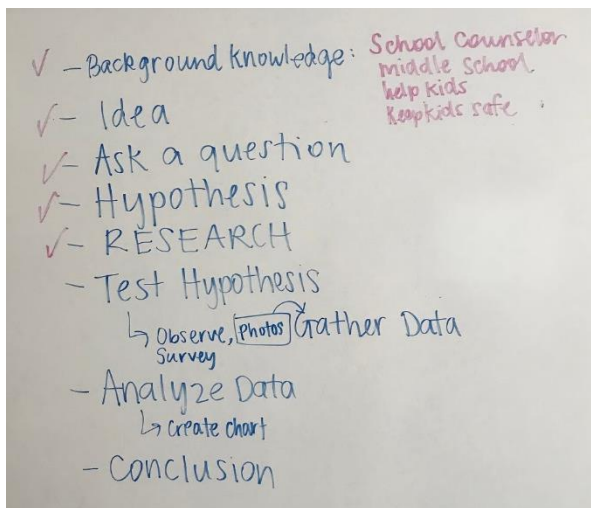 ✓ - Background Knowledge: School Counselor
middle school
help kids
Keep kids safe
✓ - Idea
✓ - Ask a question
✓ - Hypothesis
✓ - RESEARCH
- Test Hypothesis
↳ Observe, Photos Gather Data
Survey
- Analyze Data
↳ create chart
- Conclusion